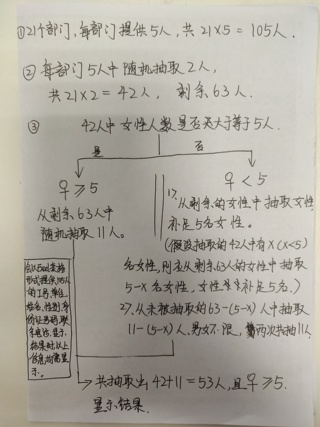 ①21个部门,每部门提供5人,共21×5=105人.
②每部门5人中随机抽取2人,
共21×2=42人, 剩余63人.
③ 42人中女性人数是否大于等于5人.
是 否
♀≥5
从剩余63人中
随机抽取11人。
♀<5
1>.从剩余的女性中抽取女性
补足5名女性。
(假设抽取的42人中有X(X<5)
名女性,则在从剩余63人的女性中抽取
5-X名女性,女性补足5名。)
2>.从未被抽取的63-(5-X)人中抽取
11-(5-X)人,男女不限,两次共抽11人
会以Excel表格
形式提供105人
的工号,单位
姓名,性别,身
份证号码,联
系电话,显示
结果时以上
信息均需显
示。
共抽取出42+11=53人,且♀≥5.
显示结果.